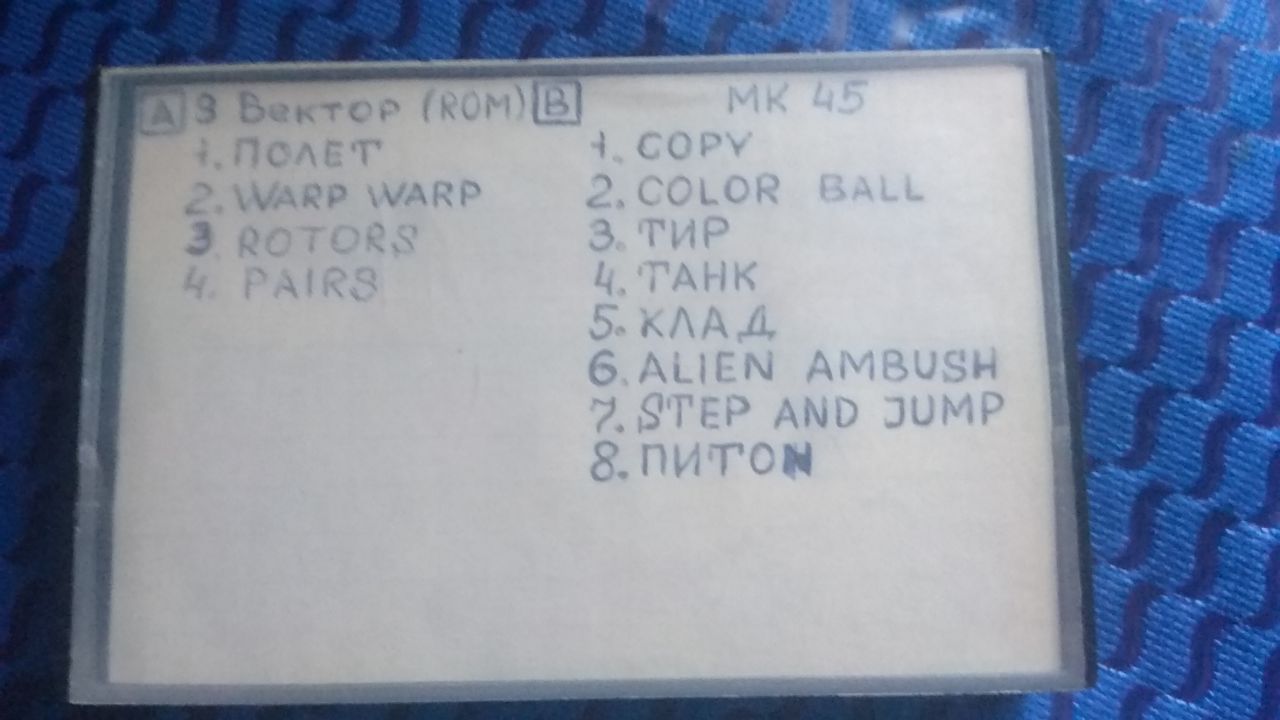 A 3 Вектор (ROM)
1. ПОЛЕТ
2. WARP WARP
3. ROTORS
4. PAIRS
B МК 45
1. COPY
2. COLOR BALL
3. ТИР
4. ТАНК
5. КЛАД
6. ALIEN AMBUSH
7. STEP AND JUMP
8. ПИТОN